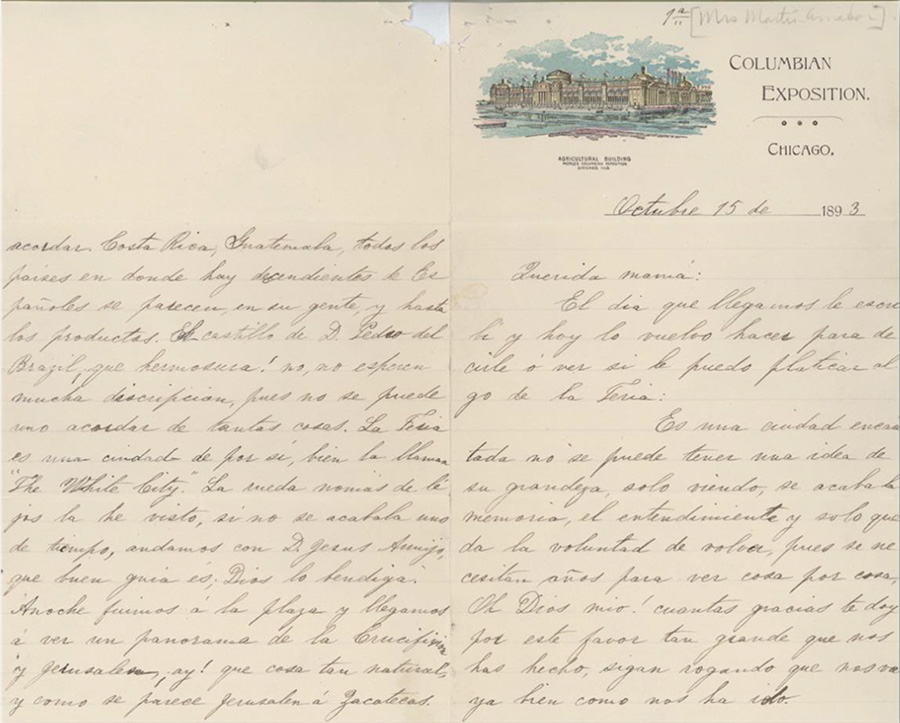 1ª [Mrs Martin Amador]
COLUMBIAN
EXPOSITION.
CHICAGO,
AGRICULTURAL BUILDING
WORLD'S COLUMBIAN EXPOSITION
CHICAGO, 1893
Octubre 15 de 1893
Querida mamá:
El dia que llegamos le escri
bi y hoy lo vuelvo hacer para de
cirle ó ver si le puedo platicar al
go de la Feria:
Es una ciudad encan
tada no se puede tener una idea de
su grandeza, solo viendo, se acaba la
memoria, el entendimiento y solo que
da la voluntad de volver, pues se ne
cesitan años para ver cosa por cosa,
Oh Dios mio! cuantas gracias te doy
por este favor tan grande que nos
has hecho, sigan rogando que nos va
ya bien como nos ha ido.
acordar. Costa Rica, Guatemala, todos los
países en donde hay decendientes de Es
pañoles se parecen en su gente, y hasta
los productos. El castillo de D. Pedro del
Brazil, que hermosura! no, no esperen
mucha discripcion, pues no se puede
uno acordar de tantas cosas. La Feria
es una ciudad de por sí, bien la llaman
"The White City". La rueda nomas de lé
jos la he visto, si no se acababa uno
de tiempo, andamos con D. Jesus Armijo,
que buen guia és; Dios lo bendiga.
Anoche fuimos á la plaza y llegamos
á ver un panorama de la Crucifixion
y Jerusalem, ay! que cosa tan natural,
y como se parece Jerusalen á Zacatecas.